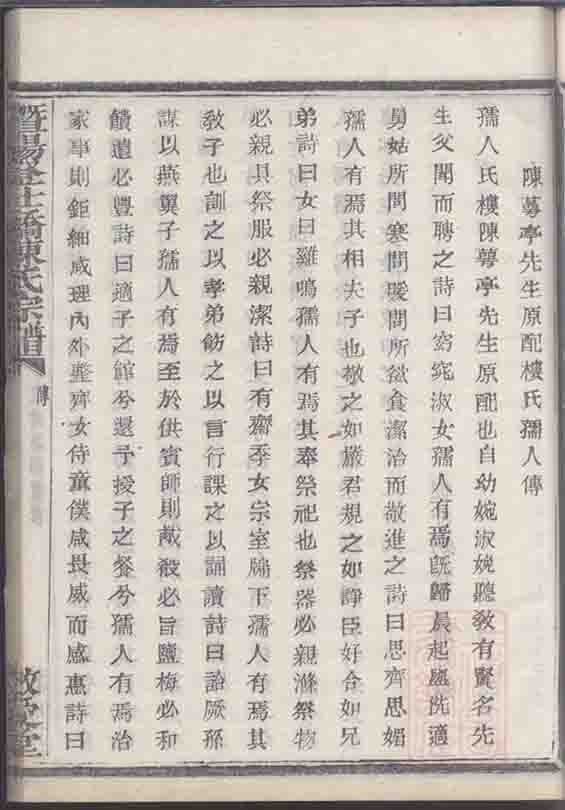 陳蓴亭先生原配樓氏孺人傳
孺人氏樓陳蓴亭先生原配也自幼婉淑娩聽敎有賢名先
生父聞而聘之詩曰窈窕淑女孺人有焉旣歸晨起盥洗適
舅姑所問寒問暖問所欲食潔治而敬進之詩曰思齊思媚
孺人有焉其相夫子也敬之如嚴君規之如諍臣好合如兄
弟詩曰女曰雞鳴孺人有焉其奉祭祀也祭器必親滌祭物
必親具祭服必親潔詩曰有齋季女宗室牖下孺人有焉其
敎子也訓之以孝弟飭之以言行課之以誦讀詩曰詒厥孫
謀以燕翼子孺人有焉至於供賓師則殽必旨鹽梅必和
饋遺必豐詩曰適子之館兮還予授子之餐兮孺人有焉治
家事則鉅細咸理內外整齊女侍童僕咸畏威而感惠詩曰
暨陽金士橋陳氏宗譜
傳
敬爱堂